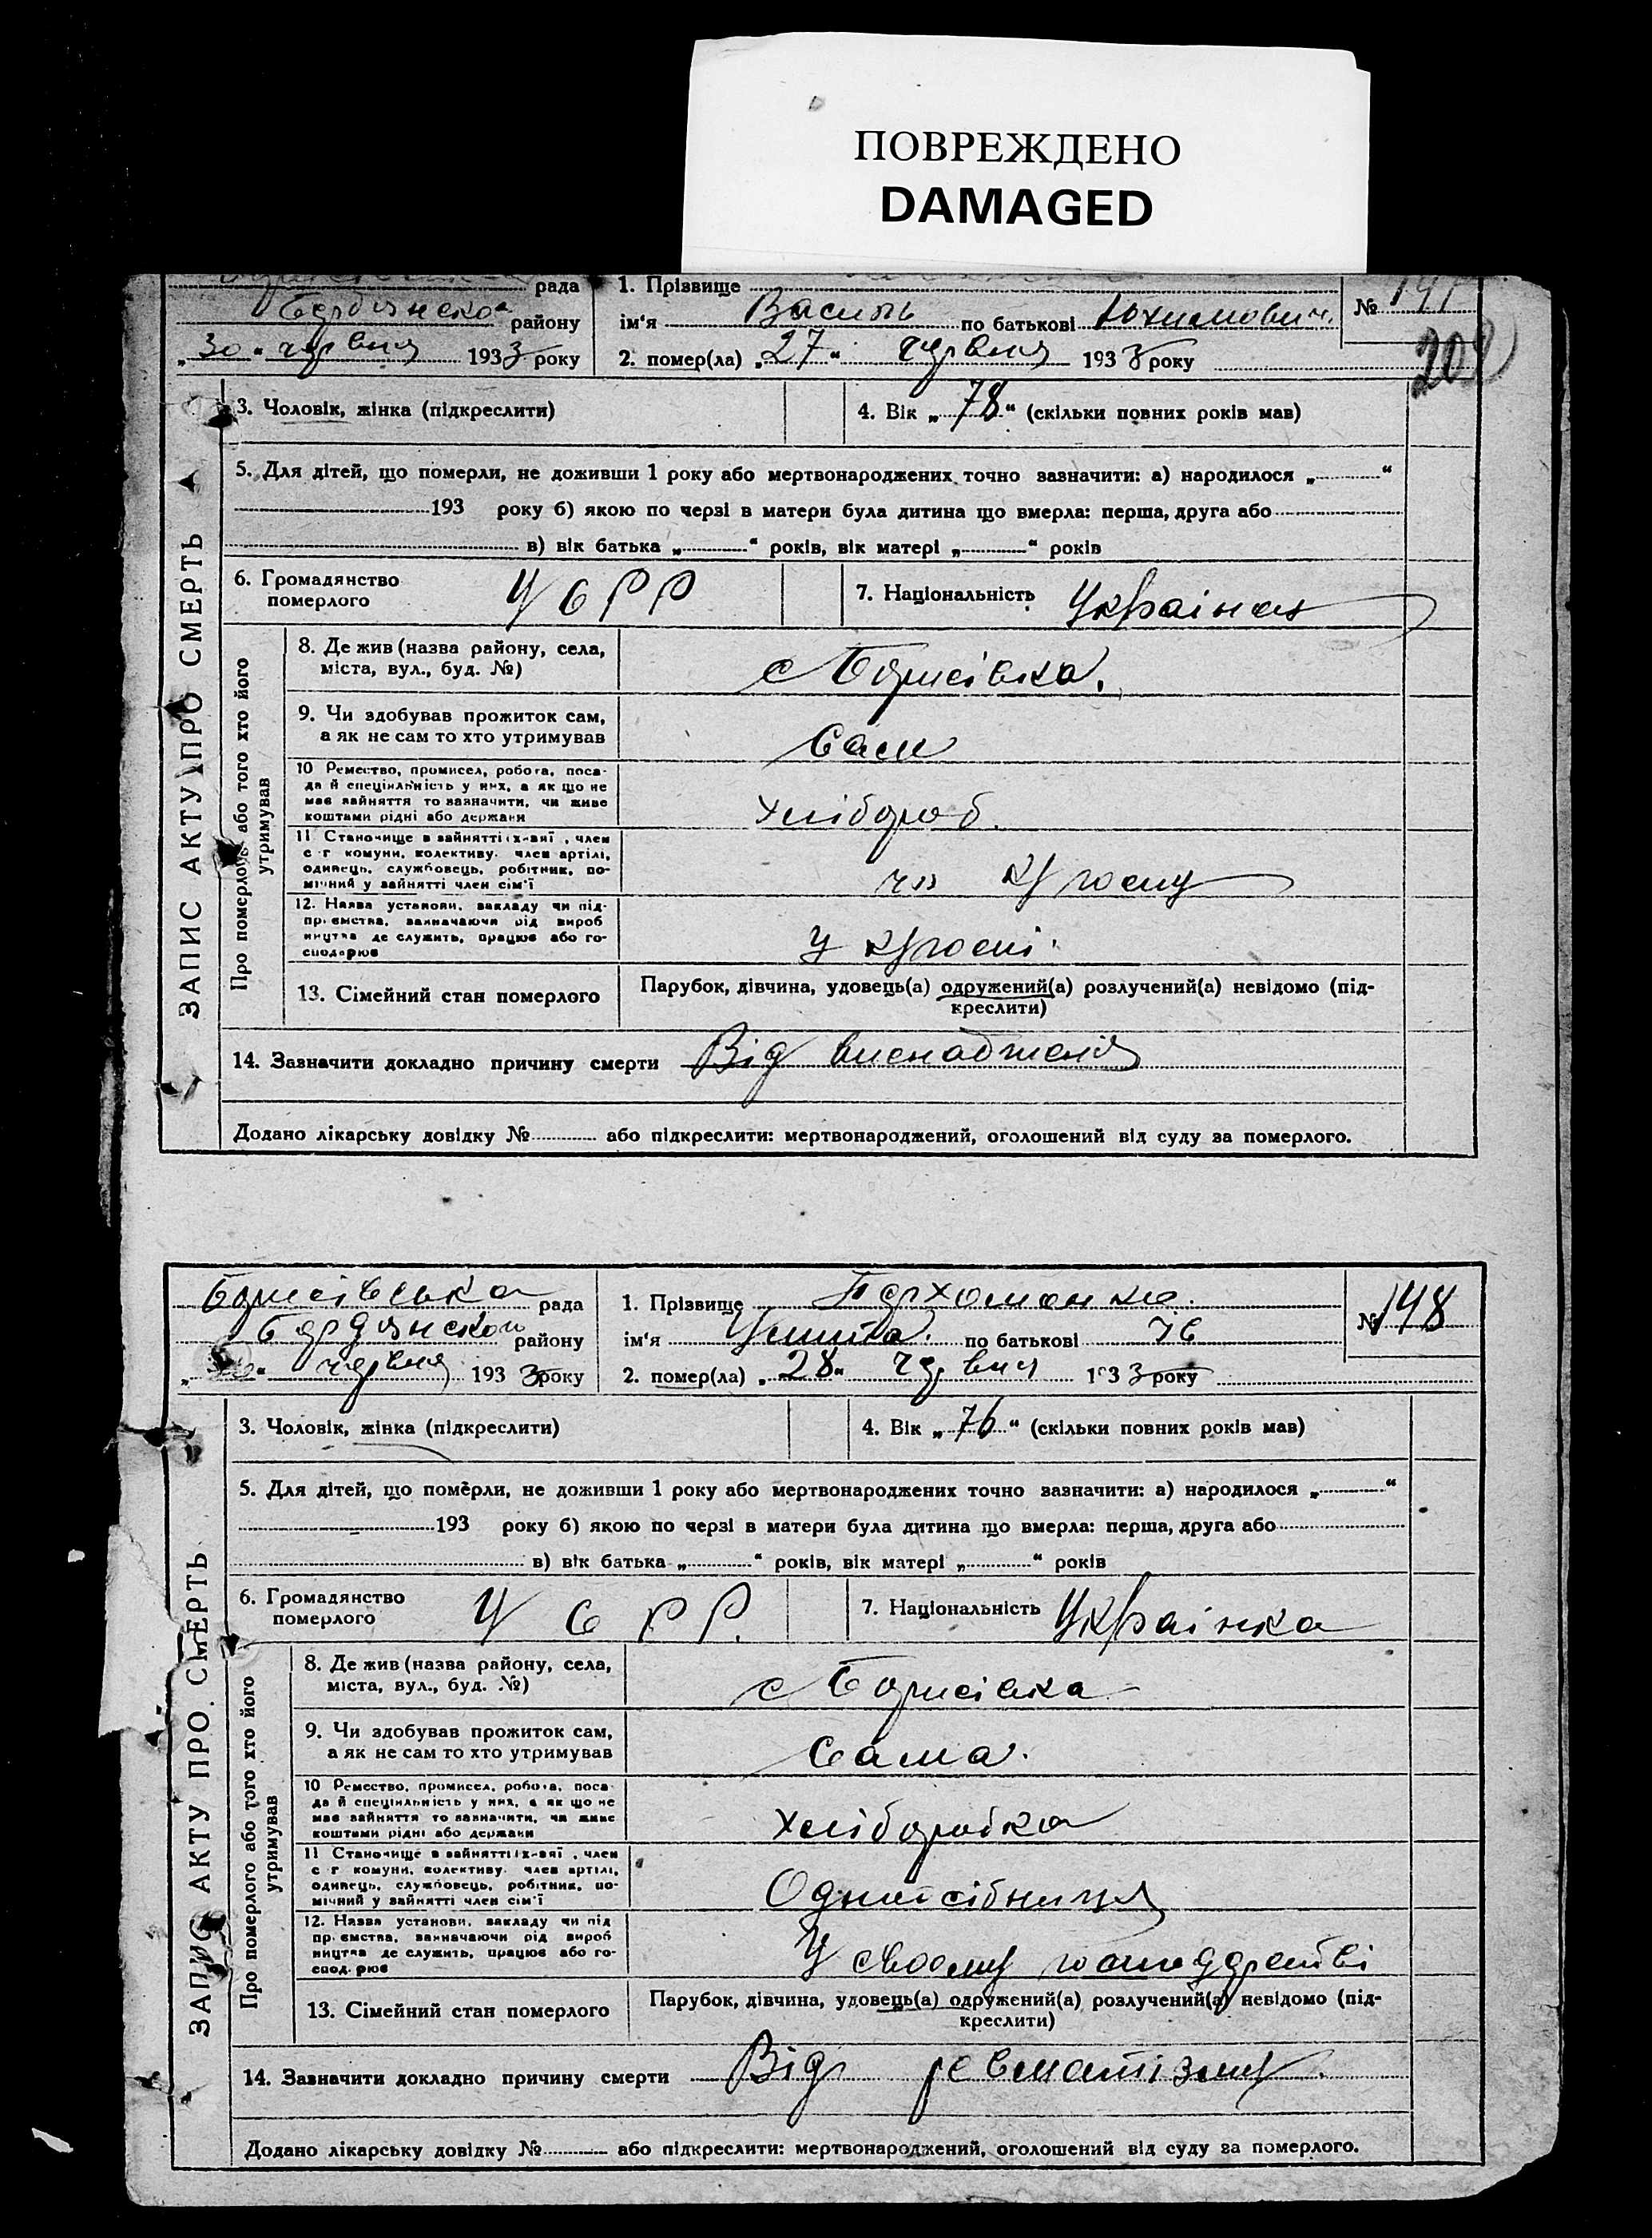 ПОВРЕЖДЕНО
DAMAGED
рада
1. Прізвище
№
района
ім'я Василь по батькові Юхимович
„30“ червня 1933 року
2. помер(ла) „27“ червня 1933 року
202
3. Чоловік, жінка (підкреслити)
4. Вік „78“ (скільки повних років мав)
5. Для дітей, що померли, не доживши 1 року або мертвонароджених точно зазначити: а) народилося „ “
193 року б) якою по черзі в матери була дитина що вмерла: перша, друга або
в) вік батька „ “ років, вік матері „ “ років
6. Громадянство
померлого
УСРР
7. Національність Українец
ЗАПИС АКТУ ПРО СМЕРТЬ
Про померлого або того хто його
утримував
8. Де жив (назва району, села,
міста, вул., буд. №)
с Борисівка.
9. Чи здобував прожиток сам,
а як не сам то хто утримував
Сам
10 Ремество, промисел, робота, поса-
да й спеціяльність у них, а як що не
має зайняття то зазначити, чи живе
коштами рідні або держави
хлібороб.
11 Становище в зайнятті х-вяї, член
с-г комуни, колективу, член артілі,
одинець, службовець, робітник, по-
мічний у зайнятті член сім'ї
чл
12. Назва установи, закладу чи під-
приємства, зазначаючи рід вироб
ництва де служить, працює або го-
сподарює
У
13. Сімейний стан померлого
Парубок, дівчина, удовець(а) одружений(а) розлучений(а) невідомо (під-
креслити)
14. Зазначити докладно причину смерти Від виснаженія
Додано лікарську довідку № або підкреслити: мертвонароджений, оголошений від суду за померлого.
Борисівська рада
1. Прізвище Пархоменко.
№ 148
Бердянского району
ім'я по батькові
червня 1933 року
2. помер(ла) „28“ червня 1933 року
3. Чоловік, жінка (підкреслити)
4. Вік „76“ (скільки повних років мав)
5. Для дітей, що померли, не доживши 1 року або мертвонароджених точно зазначити: а) народилося „ “
193 року б) якою по черзі в матери була дитина що вмерла: перша, друга або
в) вік батька „ “ років, вік матері „ “ років
6. Громадянство
померлого
УСРР.
7. Національність Українка
ЗАПИС АКТУ ПРО СМЕРТЬ
Про померлого або того хто його
утримував
8. Де жив (назва району, села,
міста, вул., буд. №)
с Борисівка
9. Чи здобував прожиток сам,
а як не сам то хто утримував
Сама.
10 Ремество, промисел, робота, поса-
да й спеціяльність у них, а як що не
має зайняття то зазначити, чи живе
коштами рідні або держави
хліборобка
11 Становище в зайнятті х-вяї, член
с-г комуни, колективу, член артілі,
одинець, службовець, робітник, по-
мічний у зайнятті член сім'ї
Одноосібниця
12. Назва установи, закладу чи під
приємства, зазначаючи рід вироб
ництва де служить, працює або го-
сподарює
У своому господарстві
13. Сімейний стан померлого
Парубок, дівчина, удовець(а) одружений(а) розлучений(а) невідомо (під-
креслити)
14. Зазначити докладно причину смерти Від ревматізму.
Додано лікарську довідку № або підкреслити: мертвонароджений, оголошений від суду за померлого.